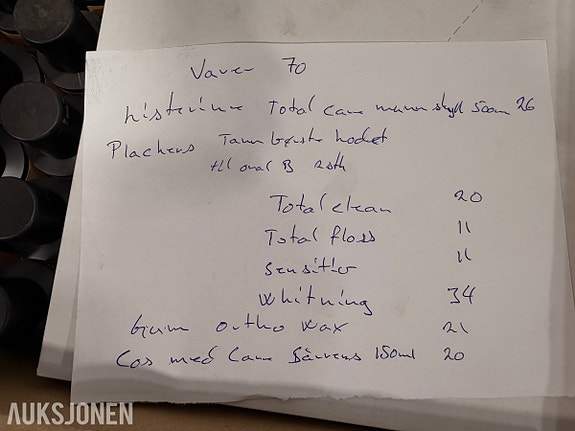 Varer 70
Listerine Total Care munn skyll 500m 26
Plackers Tannbørste hodet
til oral B 20th
Total clean 20
Total floss 11
Sensitiv 11
Whitning 34
Gum ortho wax 21
Cos med Came Bärrens 150ml 20
AUKSJONEN